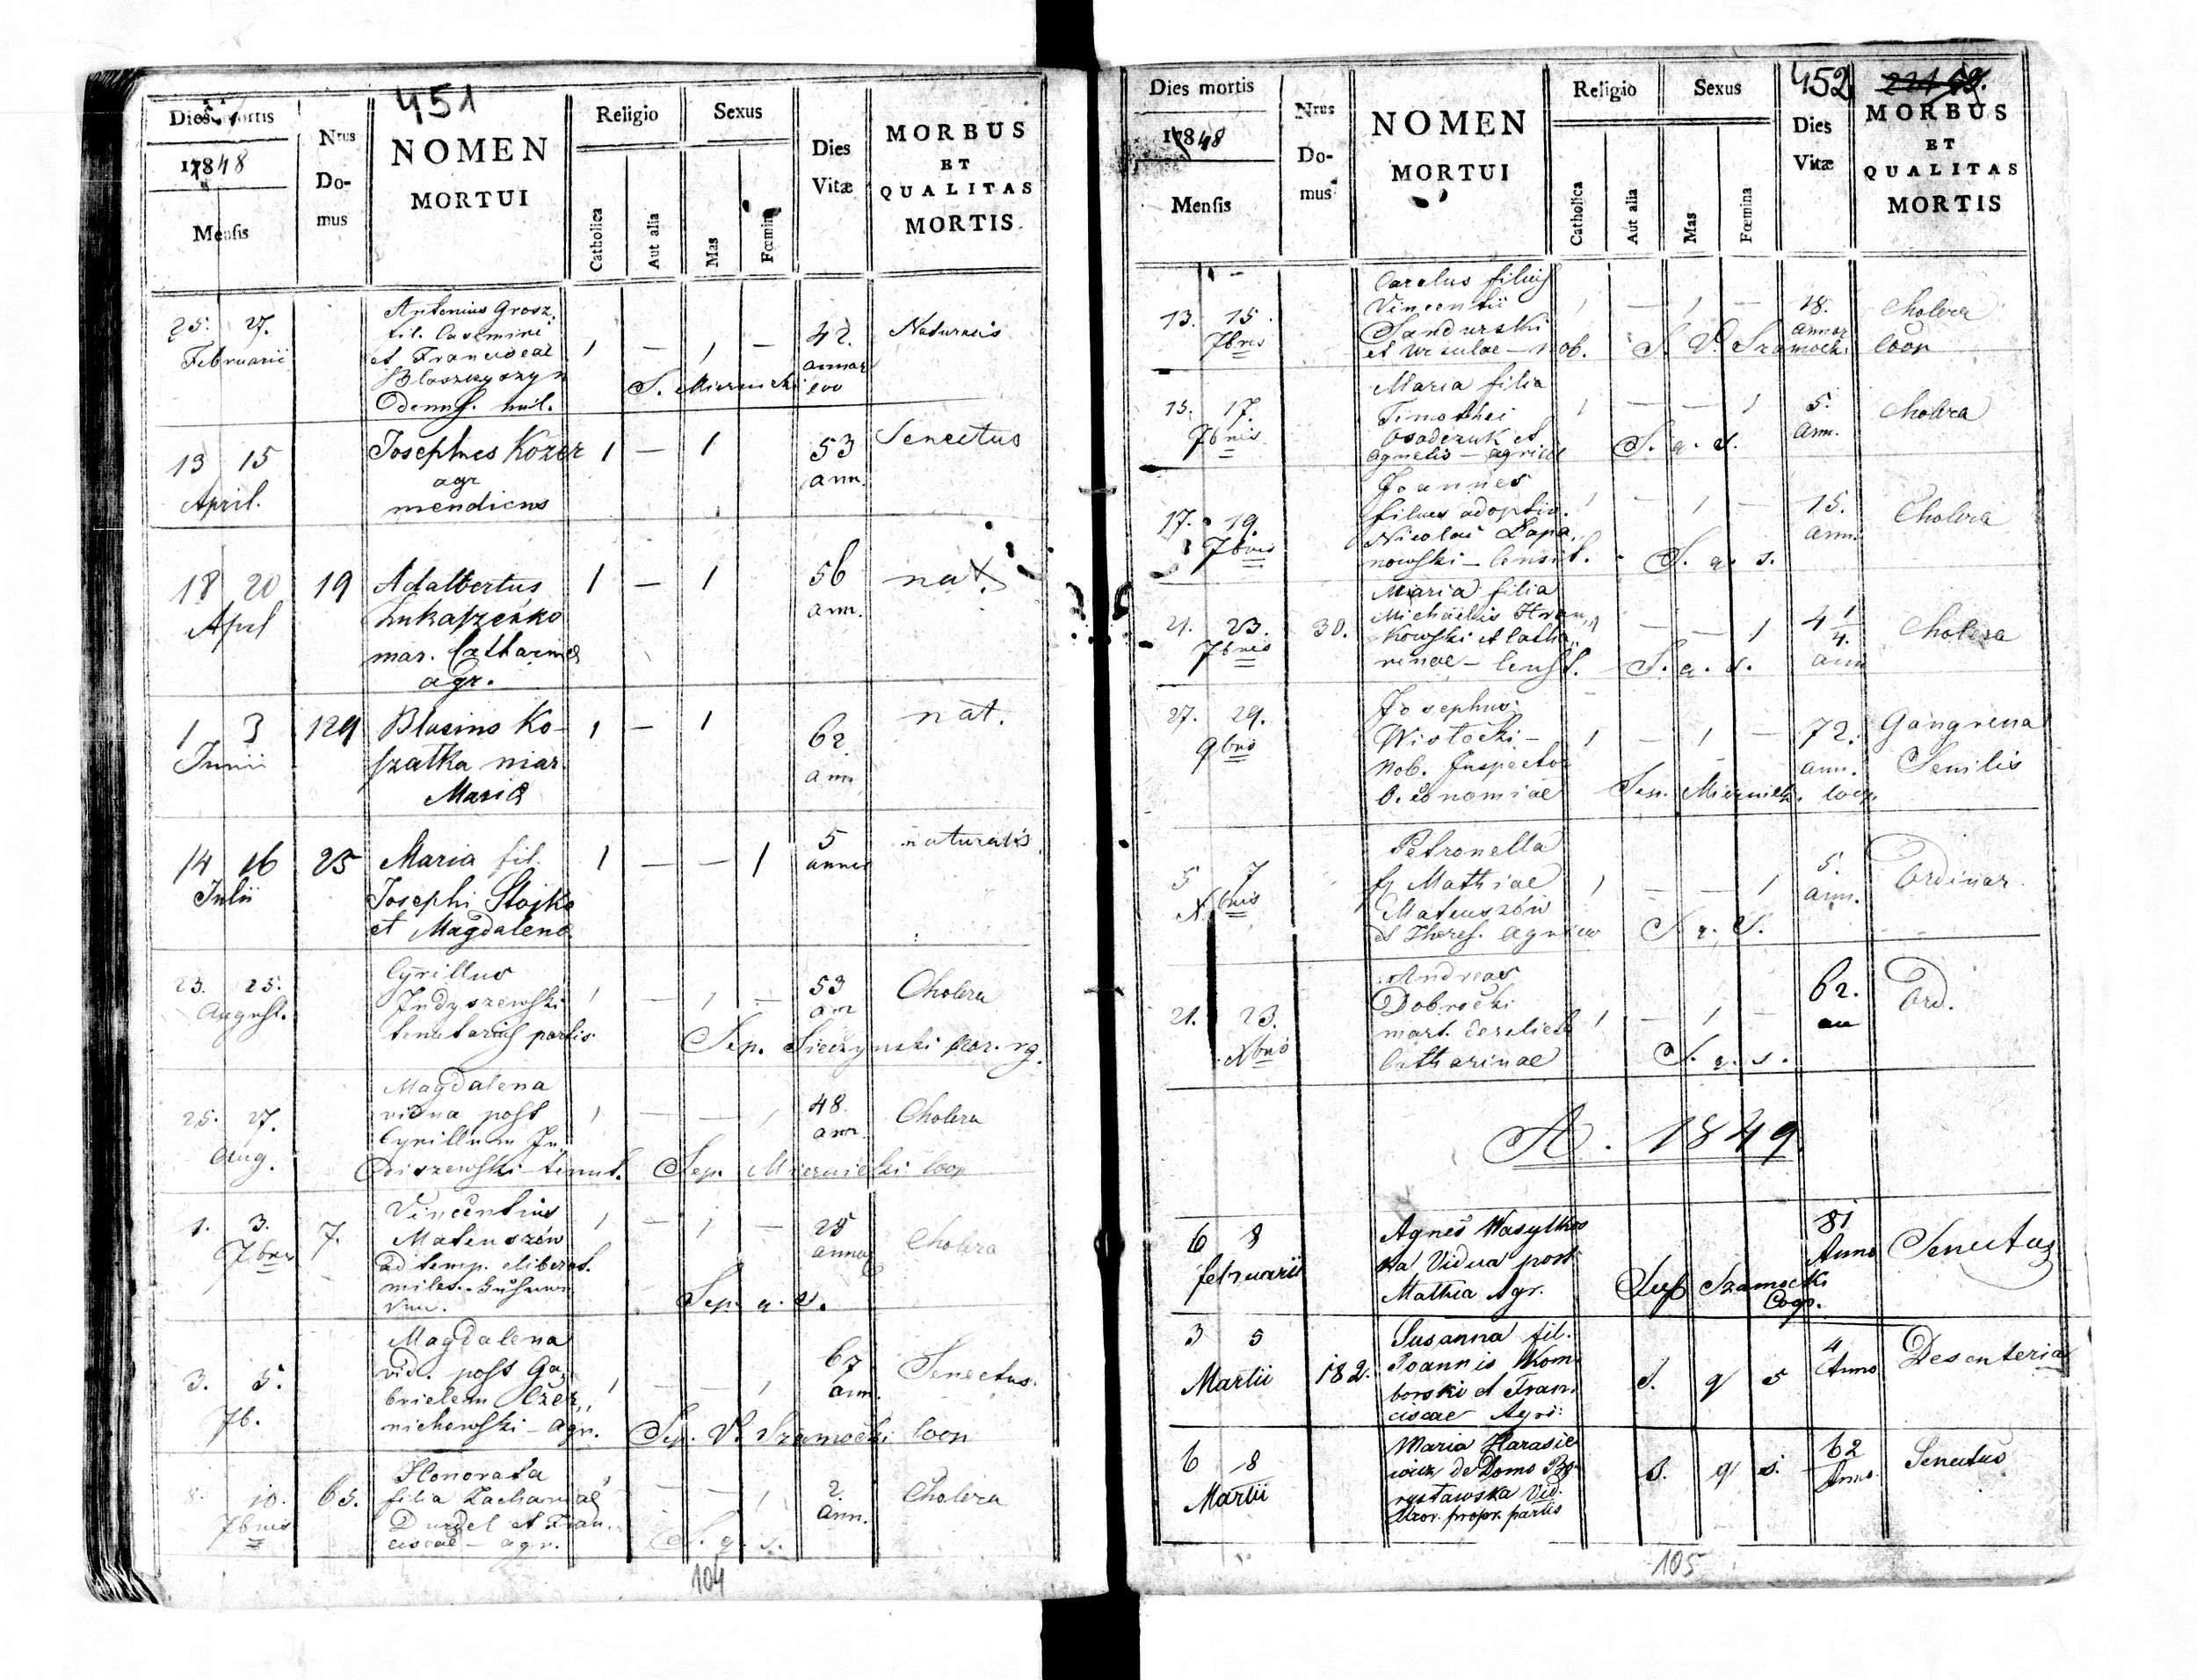 451
Dies mortis
Nrus
Domus
NOMEN
MORTUI
Religio
Sexus
Dies
Vitæ
MORBUS
ET
QUALITAS
MORTIS.
1848
Mensis
Catholica
Aut alia
Mas
Fœmina
25. 27.
Februarii
Antonius Grosz
fil. Casimiri
et Franciscae
Blaszczyszyn
1 — 1 —
42.
annor
Naturalis
S. Miernicki
13 15
April.
Josephus Kozer
agr
mendicus
1 — 1
53
ann.
Senectus
18 20
Apel
19
Adalbertus
Łukaszeńko
mar. Catharinæ
agr.
1 — 1
56
ann.
nat.
1 3
Junii
129
Blasius Ko-
szatka mar.
Mariæ
1 — 1
62
ann
nat.
14 16
Julii
25
Maria fil.
Josephi Stojko
et Magdalena
1 — — 1
5
annor
naturalis
23. 25.
August.
Cyrillus
Indyszewski
tenutarius partis
1 — 1 —
53
an
Cholera
Sep. Sieczynski
25. 27.
Aug.
Magdalena
vidua post
Cyrillum In„
diszewski tenut.
1 — — 1
48.
ann.
Cholera
Sep. Miernicki Coop
1. 3.
7bris
7.
Vincentius
Mateuszów
ad temp. eliberat.
miles.
1 — 1 —
25
annor
Cholera
Sep. q. s.
3. 5.
7b.
Magdalena
vid. post Ga„
brielem Czer„
nichowski — agr.
1 — — 1
67
ann.
Senectus.
Sep. V. Szamocki Coop
8. 10.
7bris
65.
Honorata
filia Zachariae
Durdel et Fran„
ciscae — agr.
1 — — 1
2.
Ann.
Cholera
S. q. s.
104
452
Dies mortis
Nrus
Domus
NOMEN
MORTUI
Religio
Sexus
Dies
Vitæ
MORBUS
ET
QUALITAS
MORTIS
1848
Mensis
Catholica
Aut alia
Mas
Fœmina
13. 15.
7bris
Carolus filius
Vincentii
Sandurski
et Ursulae — nob.
1 — 1 —
18.
annor
Cholera
S. V. Szamocki Coop
15. 17.
7bris
Maria filia
Timothei
Osadczuk et
Agnetis — agricol
1 — — 1
5.
Ann.
Cholera
S. q. s.
17. 19.
7bris
Joannes
filius adoptiv.
Nicolai Łapa„
nowski —
1 — 1 —
15.
ann.
Cholera
S. q. s.
21. 23.
7bris
30.
Maria filia
Michaëlis Hran„
kowski et Catha„
rinae —
1 — — 1
4 1/4.
ann
Cholera
S. q. s.
27. 29.
9bris
Josephus
Wisłocki —
Nob. Inspector
Oeconomiae
1 — 1 —
72.
ann.
Gangrena
Senilis
Sep. Miernicki. Coop.
5 7
Xbris
Petronella
f. Mathiae
Mateuszów
et Theres. agricol
1 — — 1
5.
ann.
Ordinar.
S. q. S.
21. 23.
Xbris
Andreas
Dobrocki
mart. derelict
Catharinae
1 — 1 —
62.
an
Ord.
S. q. s.
A. 1849
6 8
februarii
Agnes Wasylkow
ska Vidua post
Mathia Agr.
81
Anno
Senectus
Sep Szamocki
Coop.
3 5
Martii
182.
Susanna fil.
Joannis Kom
borski et Fran
ciscae Agri:
S. q s
4
Anno
Desenteria
6 8
Martii
Maria Harasie
wicz de Domo Bo
rysławska Vid.
Uxor. propr. partis
S. q s.
62
Anno.
Senectus
105